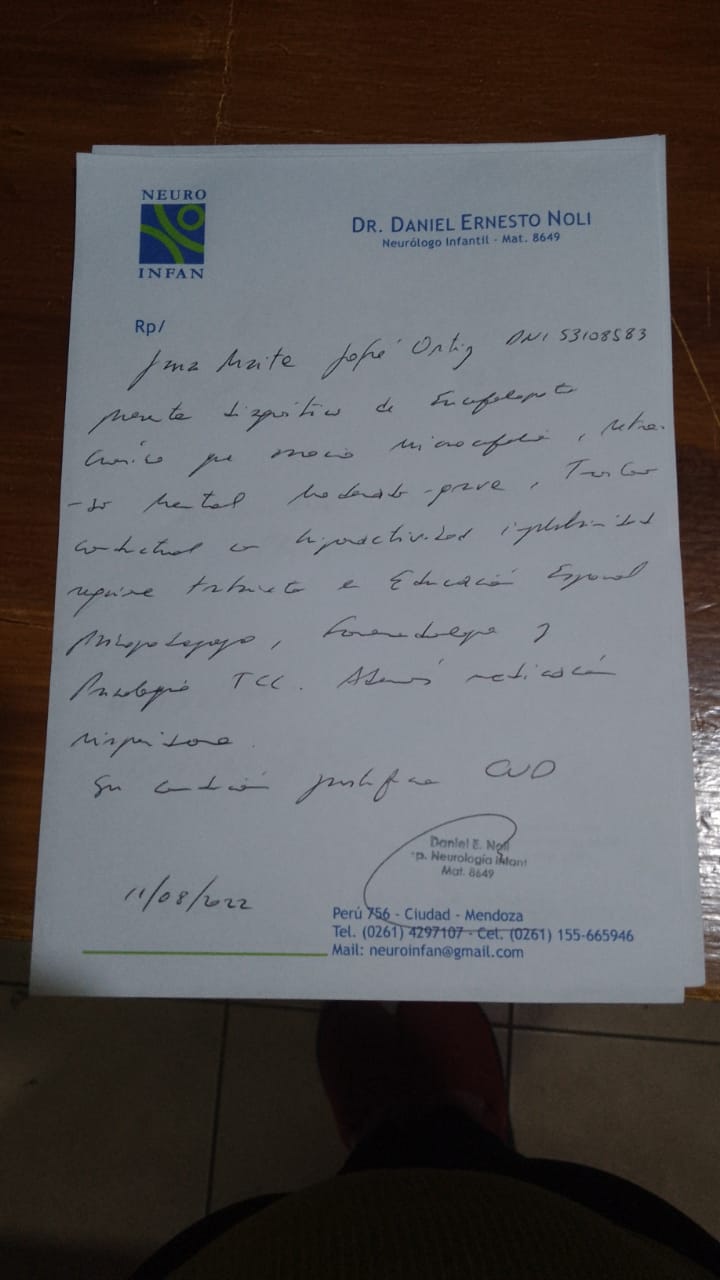 NEURO
INFAN
DR. DANIEL ERNESTO NOLI
Neurólogo Infantil - Mat. 8649
Rp/
Maite Jofré Ortiz DNI 53108583
presenta diagnóstico de Encefalopatía
Crónica que asocia microcefalia, retra-
-so mental moderado-grave, Trastorno
conductual con hiperactividad impulsividad
requiere tratamiento en Educación Especial
Psicopedagogía, Fonoaudiología y
Psicología TCC. Además medicación
risperidona.
Su condición justifica CUD
Daniel E. Noli
p. Neurología Infant
Mat. 8649
11/08/2022
Perú 756 - Ciudad - Mendoza
Tel. (0261) 4297107 - Cel. (0261) 155-665946
Mail: neuroinfan@gmail.com